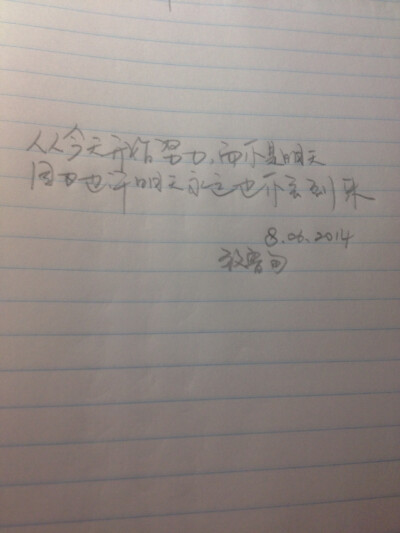 从今天开始努力,而不是明天
因为也许明天永远也不会到来
8.06.2014